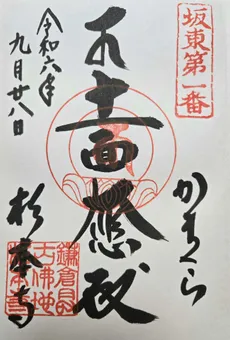 坂東第一番
かまくら
十一面
殿
令和六年
九月廿八日
杉本寺
鎌倉最
古佛地
杉本寺